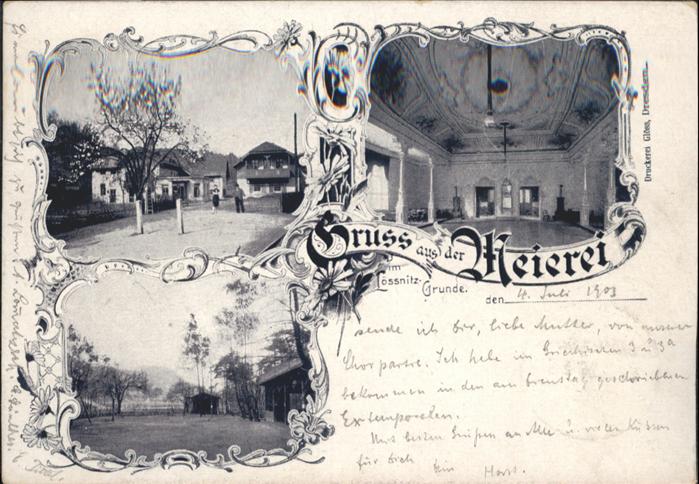 Gruss aus der Meierei
im
Lössnitz-
Grunde.
den 4. Juli 1903
sende ich Dir, liebe Mutter, von unserer
Chorpartie. Ich habe im Griechischen 3 u 3a
bekommen in den am Dienstag geschriebenen
Extemporalen.
Mit besten Grüßen an Alle u. vielen Küssen
für Dich Dein Horst.
Druckerei Glöss, Dresden.